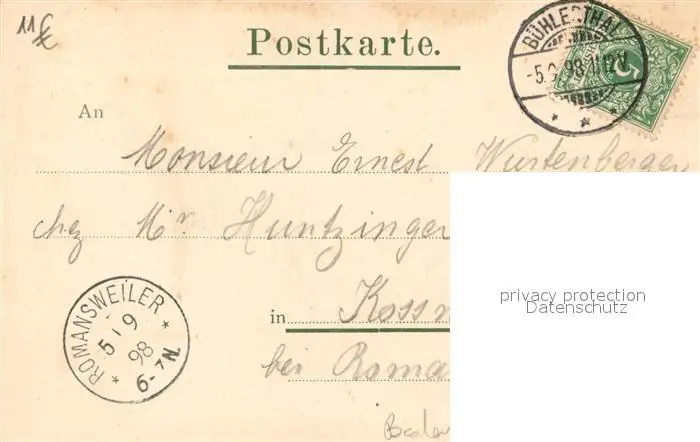 11 €
Postkarte.
BÜHLERTHAL
-5.9.98.11-12V.
5
An
Monsieur Ernest Würtenberger
chez Mr. Huntzinger
ROMANSWEILER
5 9
98
6-7N.
in Kossn
privacy protection
Datenschutz
bei Roma
Baden